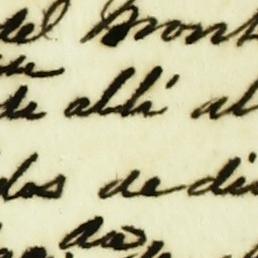 del Mont
de allí al
dos de di
da